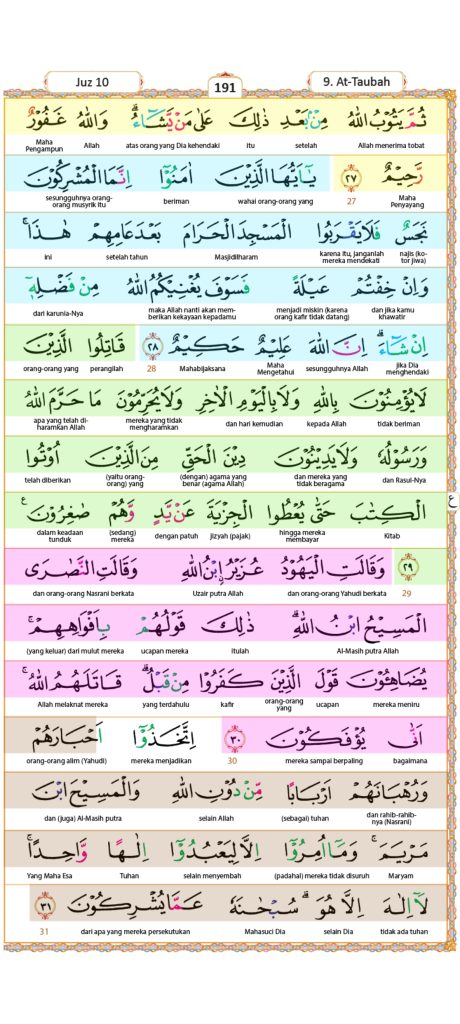 Juz 10
191
9. At-Taubah
ثُمَّ يَتُوْبُ اللّٰهُ مِنْۢ بَعْدِ ذٰلِكَ عَلٰى مَنْ يَّشَاۤءُۗ وَاللّٰهُ غَفُوْرٌ
Allah menerima tobat setelah itu atas orang yang Dia kehendaki Allah Maha Pengampun
رَّحِيْمٌ ٢٧ يٰٓاَيُّهَا الَّذِيْنَ اٰمَنُوْٓا اِنَّمَا الْمُشْرِكُوْنَ
Maha Penyayang 27 wahai orang-orang yang beriman sesungguhnya orang-orang musyrik itu
نَجَسٌ فَلَا يَقْرَبُوا الْمَسْجِدَ الْحَرَامَ بَعْدَ عَامِهِمْ هٰذَاۚ
najis (kotor jiwa) karena itu, janganlah mereka mendekati Masjidilharam setelah tahun ini
وَاِنْ خِفْتُمْ عَيْلَةً فَسَوْفَ يُغْنِيْكُمُ اللّٰهُ مِنْ فَضْلِهٖٓ
dan jika kamu khawatir menjadi miskin (karena orang kafir tidak datang) maka Allah nanti akan memberikan kekayaan kepadamu dari karunia-Nya
اِنْ شَاۤءَۗ اِنَّ اللّٰهَ عَلِيْمٌ حَكِيْمٌ ٢٨ قَاتِلُوا الَّذِيْنَ
jika Dia menghendaki sesungguhnya Allah Maha Mengetahui Mahabijaksana 28 perangilah orang-orang yang
لَا يُؤْمِنُوْنَ بِاللّٰهِ وَلَا بِالْيَوْمِ الْاٰخِرِ وَلَا يُحَرِّمُوْنَ مَا حَرَّمَ اللّٰهُ
tidak beriman kepada Allah dan hari kemudian mereka yang tidak mengharamkan apa yang telah diharamkan Allah
وَرَسُوْلُهٗ وَلَا يَدِيْنُوْنَ دِيْنَ الْحَقِّ مِنَ الَّذِيْنَ اُوْتُوا
dan Rasul-Nya dan mereka yang tidak beragama (dengan) agama yang benar (agama Allah) (yaitu orang-orang) yang telah diberikan
الْكِتٰبَ حَتّٰى يُعْطُوا الْجِزْيَةَ عَنْ يَّدٍ وَّهُمْ صٰغِرُوْنَ ࣖ
ع
Kitab hingga mereka membayar Jizyah (pajak) dengan patuh (sedang) mereka dalam keadaan tunduk
٢٩ وَقَالَتِ الْيَهُوْدُ عُزَيْرُ ِۨابْنُ اللّٰهِ وَقَالَتِ النَّصٰرَى
29 dan orang-orang Yahudi berkata Uzair putra Allah dan orang-orang Nasrani berkata
الْمَسِيْحُ ابْنُ اللّٰهِۗ ذٰلِكَ قَوْلُهُمْ بِاَفْوَاهِهِمْۚ
Al-Masih putra Allah itulah ucapan mereka (yang keluar) dari mulut mereka
يُضَاهِـُٔوْنَ قَوْلَ الَّذِيْنَ كَفَرُوْا مِنْ قَبْلُۗ قَاتَلَهُمُ اللّٰهُۚ
mereka meniru ucapan orang-orang yang kafir yang terdahulu Allah melaknat mereka
اَنّٰى يُؤْفَكُوْنَ ٣٠ اِتَّخَذُوْٓا اَحْبَارَهُمْ
bagaimana mereka sampai berpaling 30 mereka menjadikan orang-orang alim (Yahudi)
وَرُهْبَانَهُمْ اَرْبَابًا مِّنْ دُوْنِ اللّٰهِ وَالْمَسِيْحَ ابْنَ
dan rahib-rahibnya (Nasrani) (sebagai) tuhan selain Allah dan (juga) Al-Masih putra
مَرْيَمَۚ وَمَآ اُمِرُوْٓا اِلَّا لِيَعْبُدُوْٓا اِلٰهًا وَّاحِدًاۚ
Maryam (padahal) mereka tidak disuruh selain menyembah Tuhan Yang Maha Esa
لَآ اِلٰهَ اِلَّا هُوَۗ سُبْحٰنَهٗ عَمَّا يُشْرِكُوْنَ ٣١
tidak ada tuhan selain Dia Mahasuci Dia dari apa yang mereka persekutukan 31